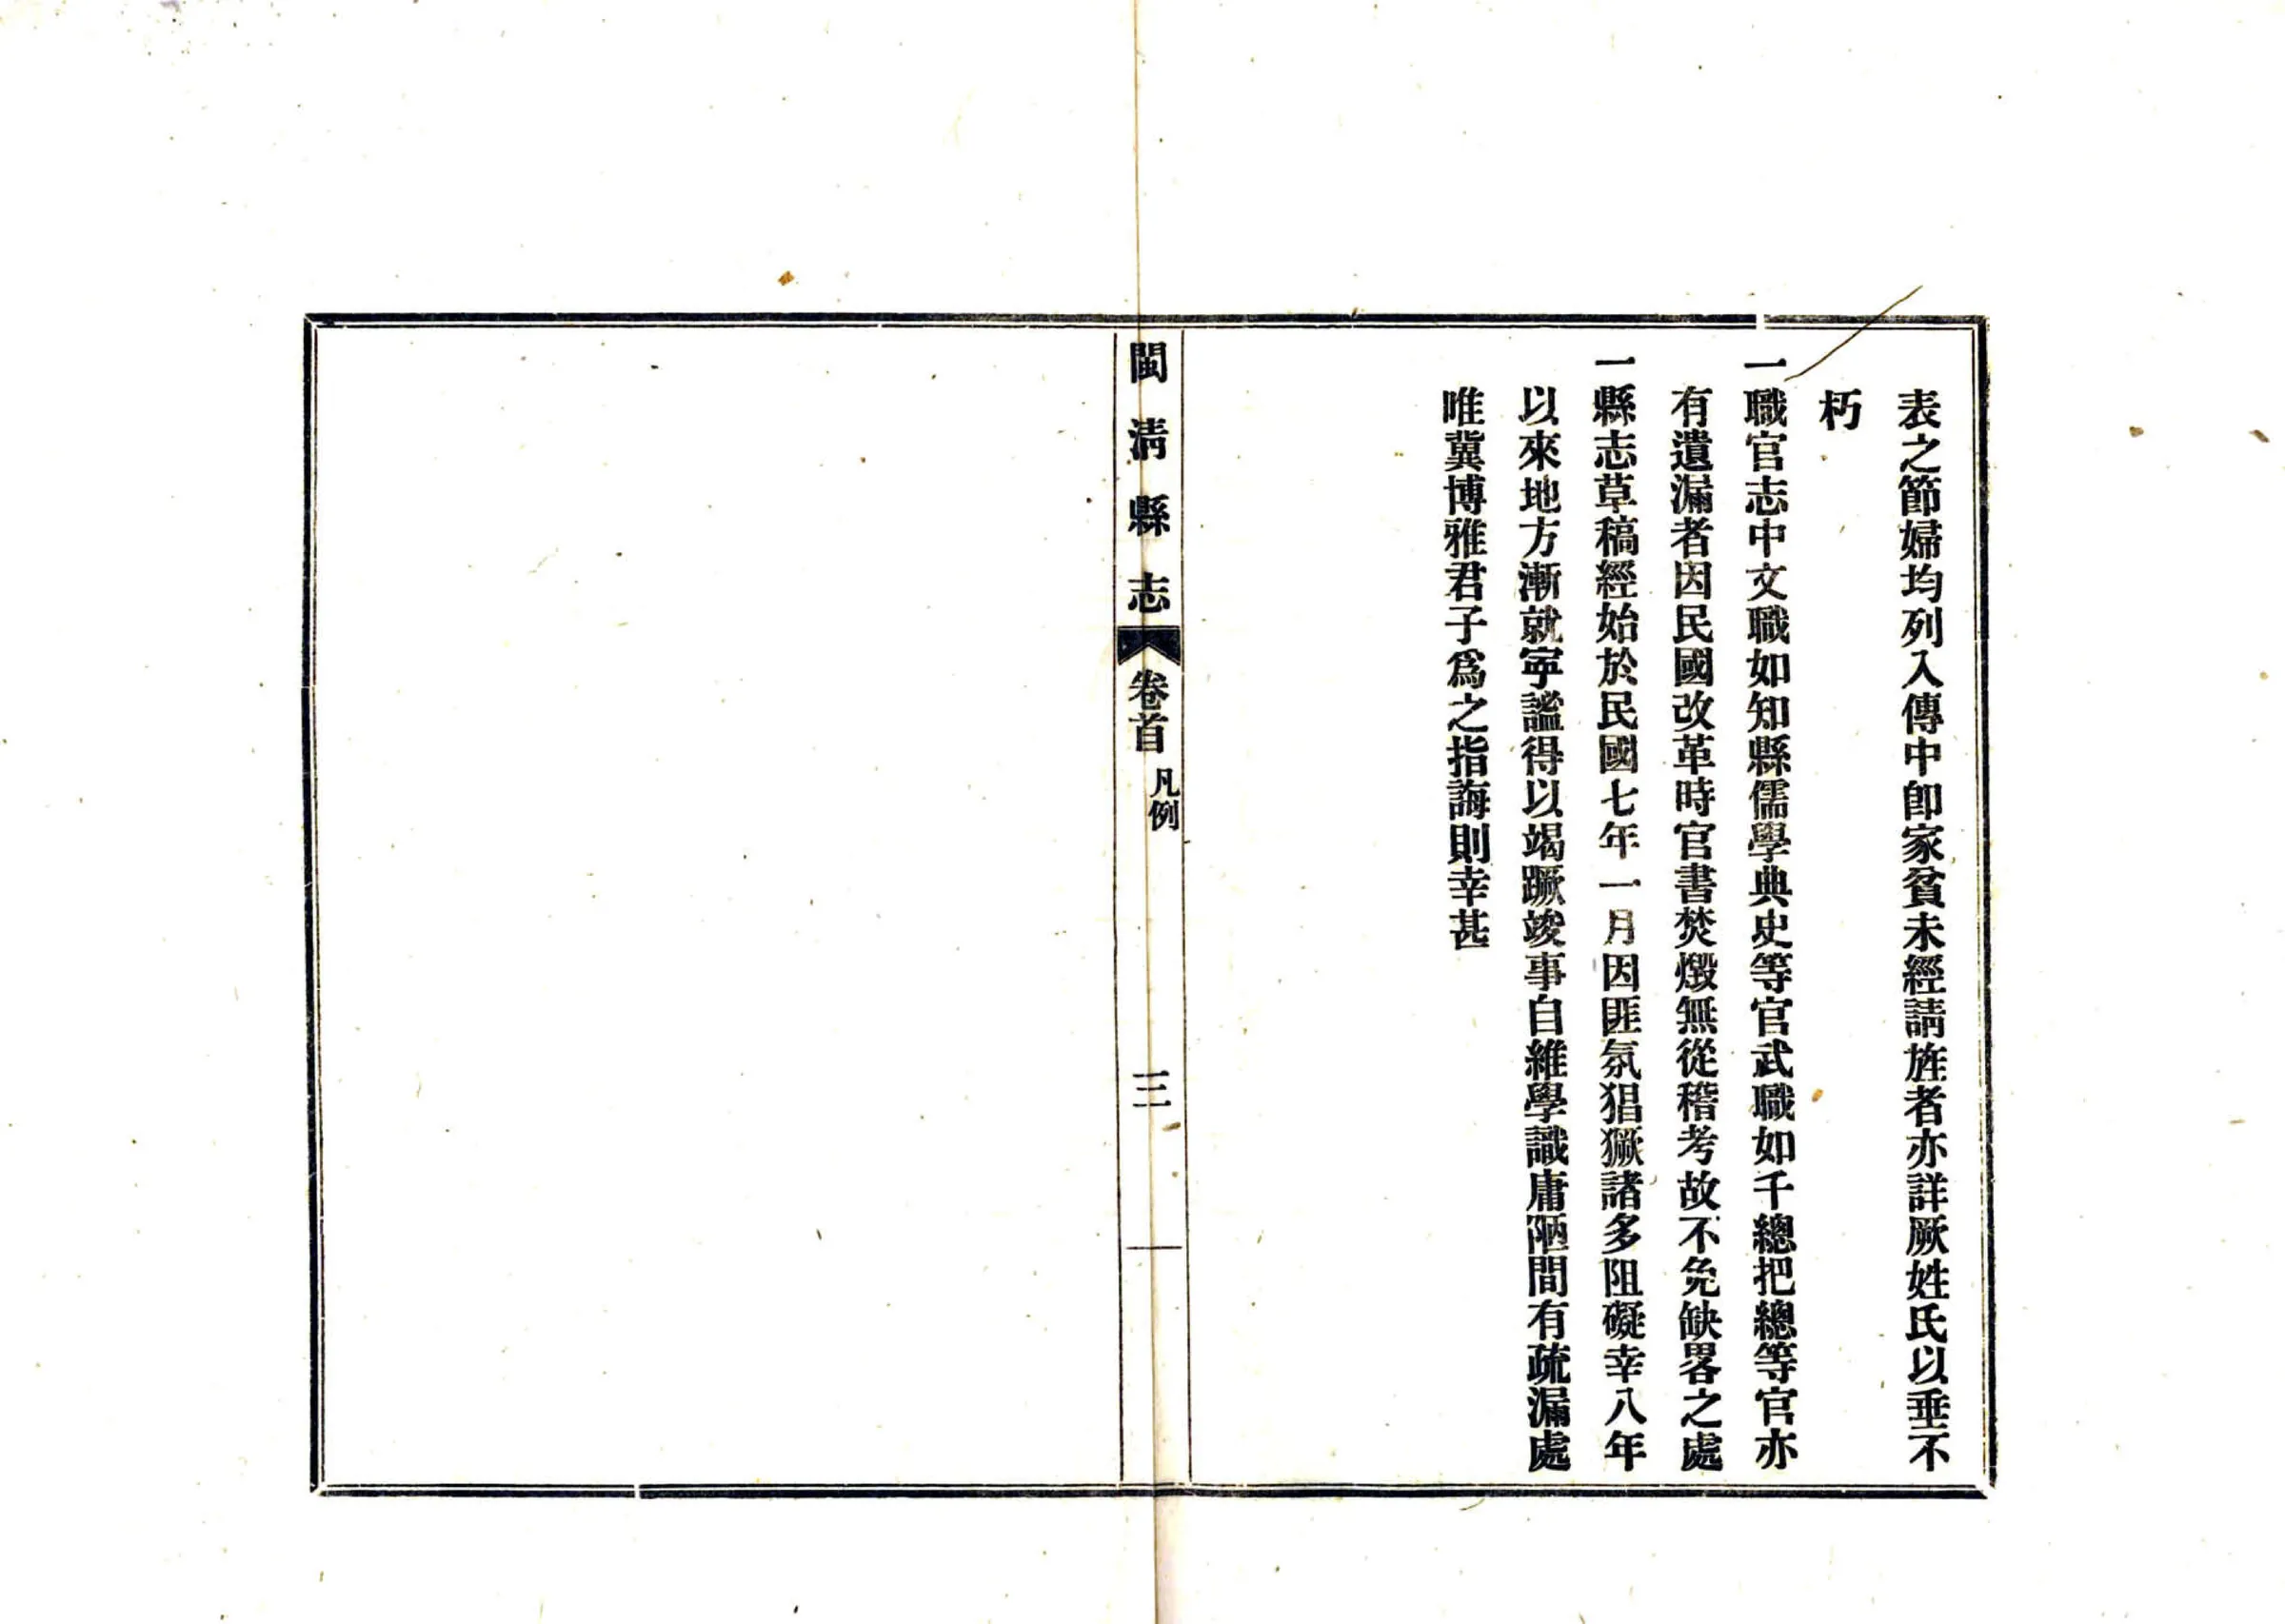 表之節婦均列入傳中卽家貧未經請旌者亦詳厥姓氏以垂不
朽
一職官志中文職如知縣儒學典史等官武職如千總把總等官亦
有遺漏者因民國改革時官書焚燬無從稽考故不免缺畧之處
一縣志草稿經始於民國七年一月因匪氛猖獗諸多阻礙幸八年
以來地方漸就寜謐得以竭蹶竣事自維學識庸陋間有疏漏處
唯冀博雅君子爲之指誨則幸甚
閩清縣志
卷首
凡例
三